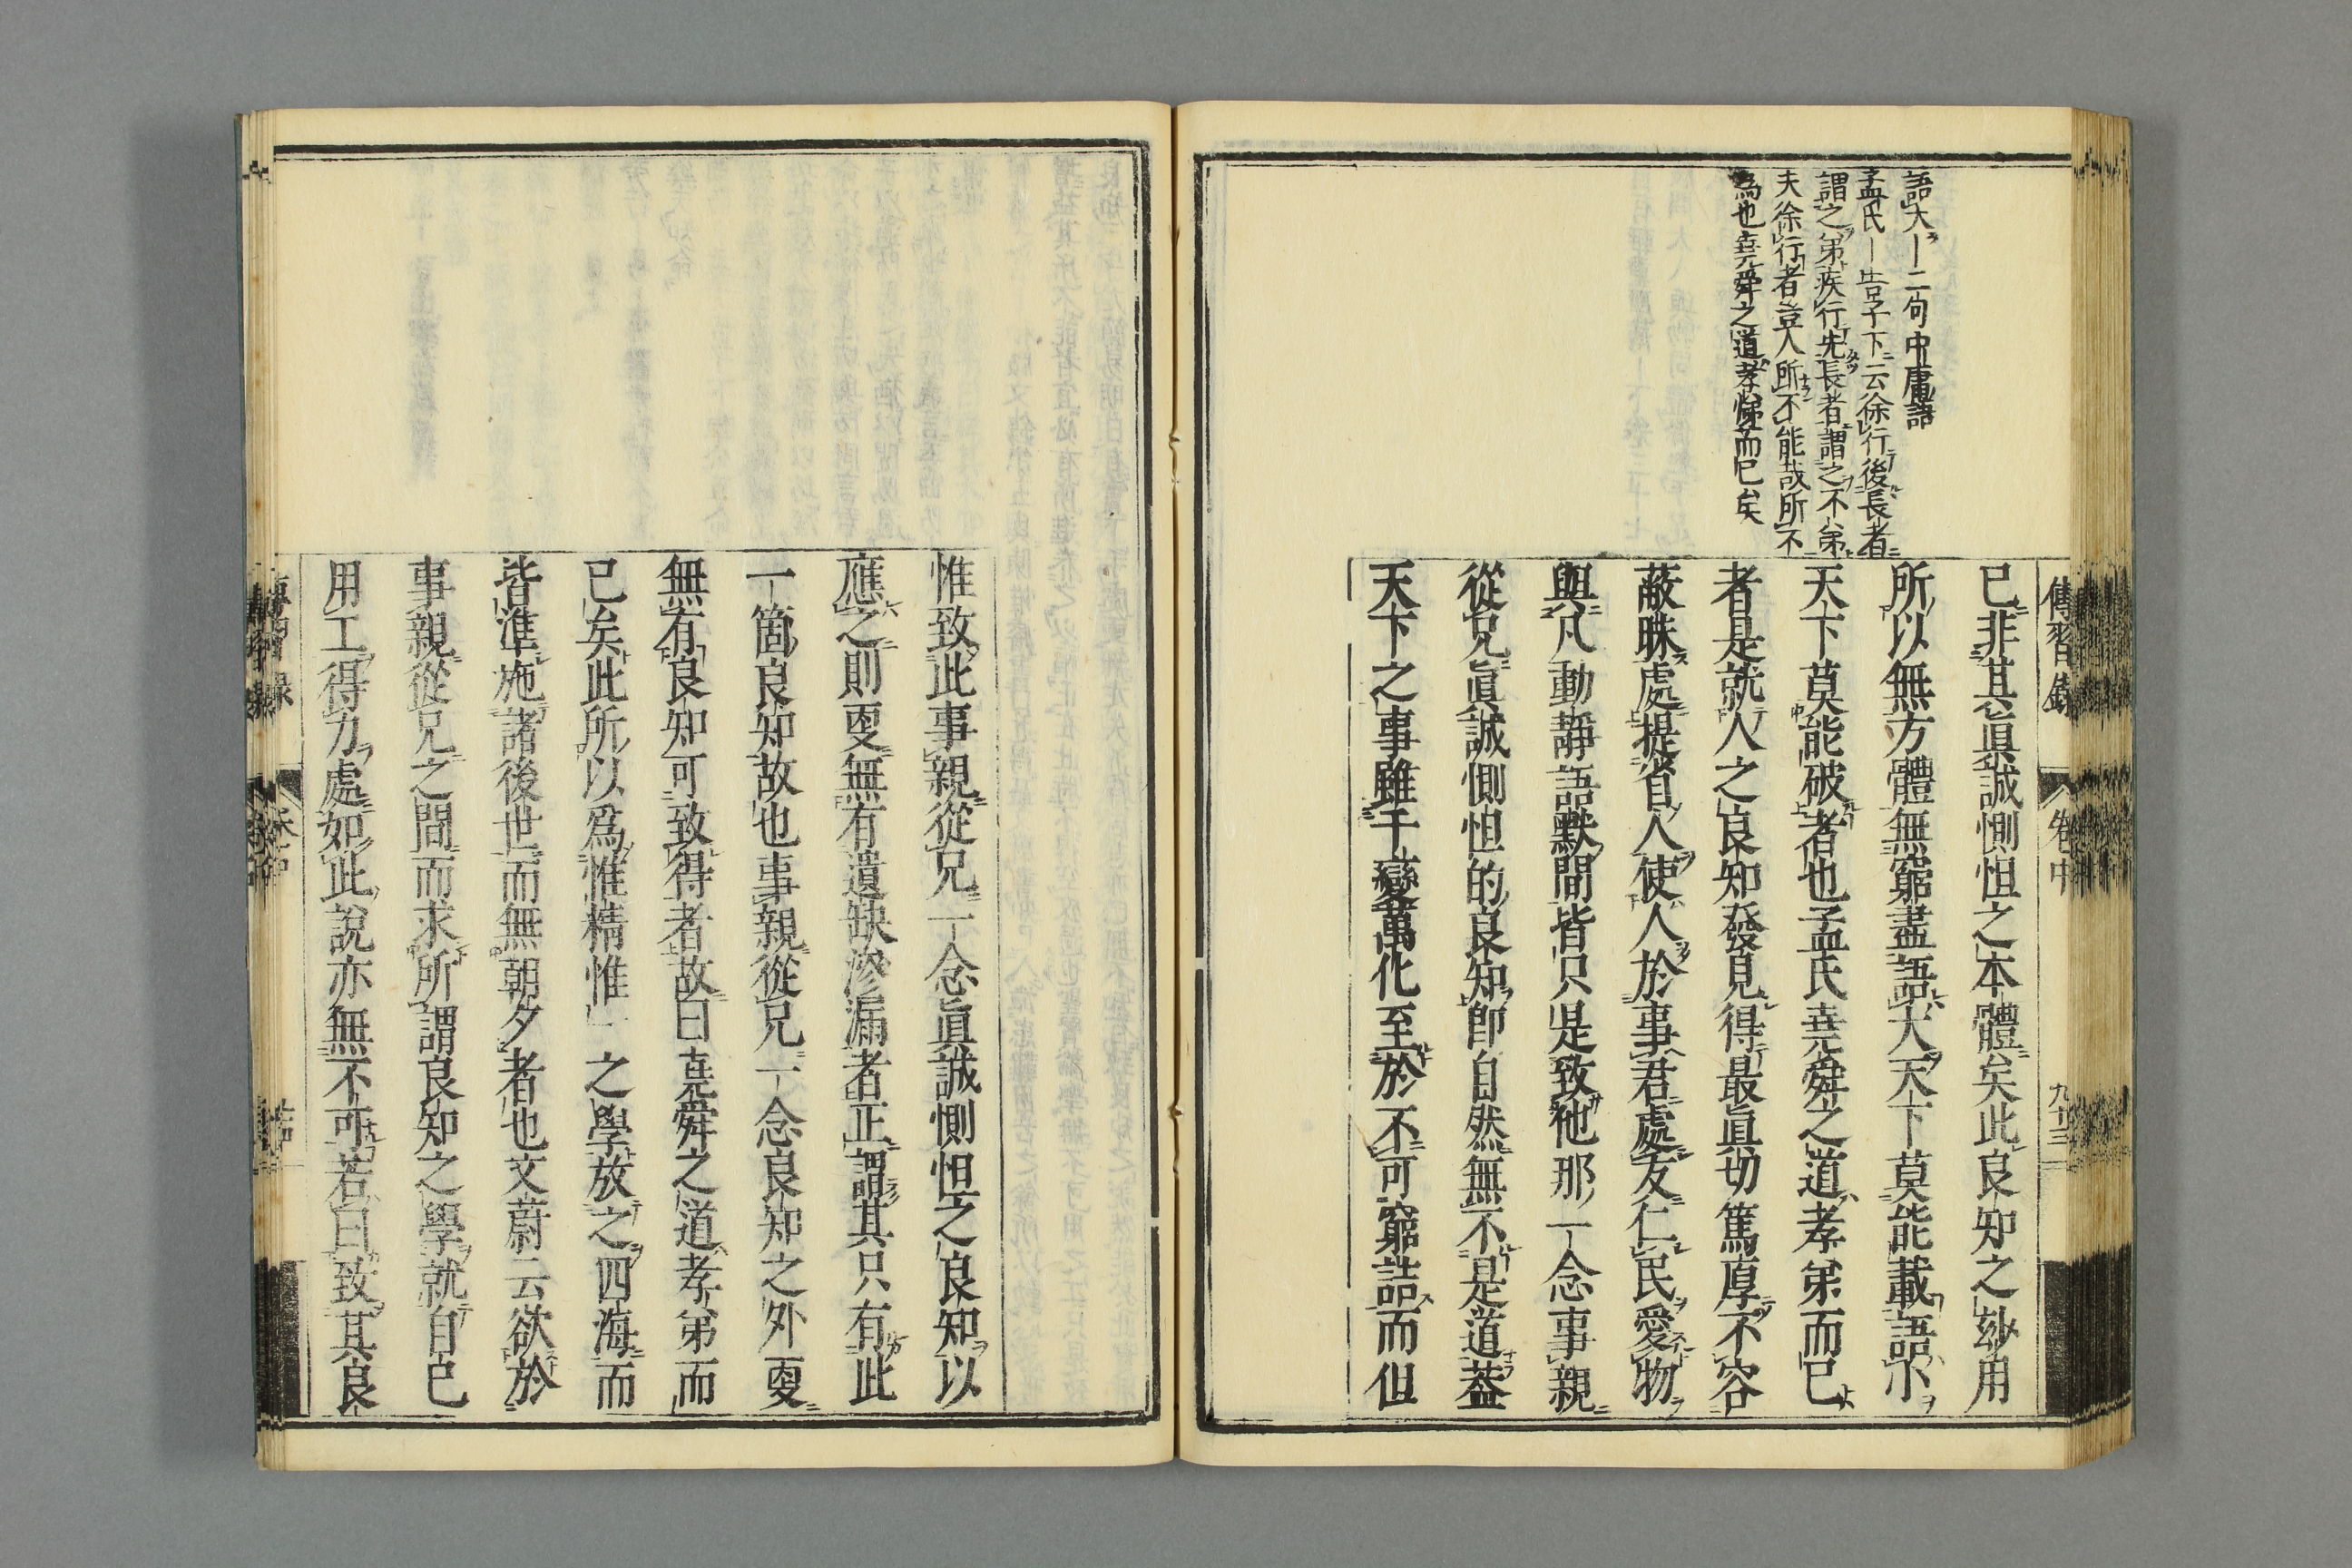 傳習錄
卷中
九十三
語大—二句中庸語
孟氏—告子下云徐行後長者
謂之弟疾行先長者謂之不弟
夫徐行者豈人所不能哉所不
爲也堯舜之道孝悌而已矣
已非其眞誠惻怛之本體矣此良知之玅用
所以無方體無窮盡語大天下莫能載語小
天下莫能破者也孟氏堯舜之道孝弟而已
者是就人之良知發見得最眞切篤厚不容
蔽昧處提省人使人於事君處友仁民愛物
與凡動靜語默間皆只是致他那一念事親
從兄眞誠惻怛的良知卽自然無不是道葢
天下之事雖千變萬化至於不可窮詰而但
惟致此事親從兄一念眞誠惻怛之良知以
應之則更無有遺缺滲漏者正謂其只有此
一箇良知故也事親從兄一念良知之外更
無有良知可致得者故曰堯舜之道孝弟而
已矣此所以爲惟精惟一之學放之四海而
皆準施諸後世而無朝夕者也文蔚云欲於
事親從兄之間而求所謂良知之學就自己
用工得力處如此說亦無不可若曰致其良